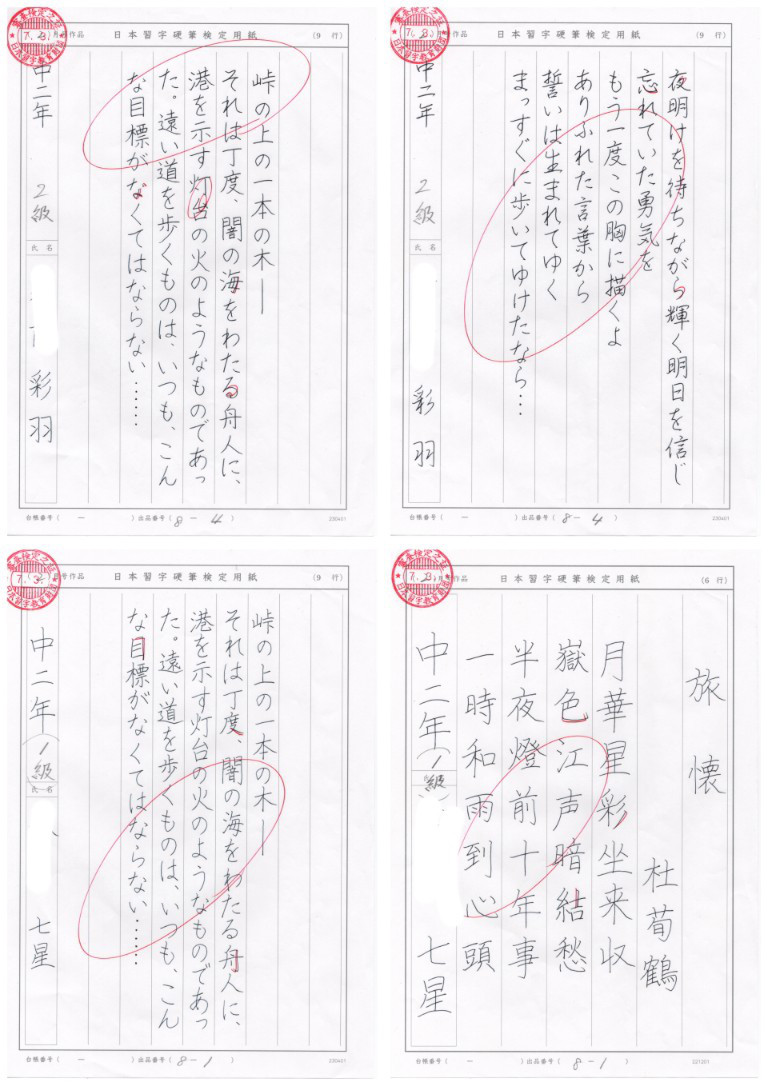 日本習字硬筆検定用紙
（9 行）
峠の上の一本の木――
それは丁度、闇の海をわたる舟人に、
港を示す灯台の火のようなものであっ
た。遠い道を歩くものは、いつも、こん
な目標がなくてはならない……
中二年 2級
氏名
彩羽
台帳番号（ － ）出品番号（ 8－4 ）
230401
日本習字硬筆検定用紙
（9 行）
夜明けを待ちながら輝く明日を信じ
忘れていた勇気を
もう一度この胸に描くよ
ありふれた言葉から
誓いは生まれてゆく
まっすぐに歩いてゆけたなら…
中二年 2級
氏名
彩羽
台帳番号（ － ）出品番号（ 8－4 ）
230401
日本習字硬筆検定用紙
（9 行）
峠の上の一本の木――
それは丁度、闇の海をわたる舟人に、
港を示す灯台の火のようなものであっ
た。遠い道を歩くものは、いつも、こん
な目標がなくてはならない……
中二年（1級）
氏名
七星
台帳番号（ － ）出品番号（ 8－1 ）
230401
日本習字硬筆検定用紙
（6 行）
旅懐
杜荀鶴
月華星彩坐来収
嶽色江声暗結愁
半夜燈前十年事
一時和雨到心頭
中二年（1級）
七星
台帳番号（ － ）出品番号（ 8－1 ）
221201